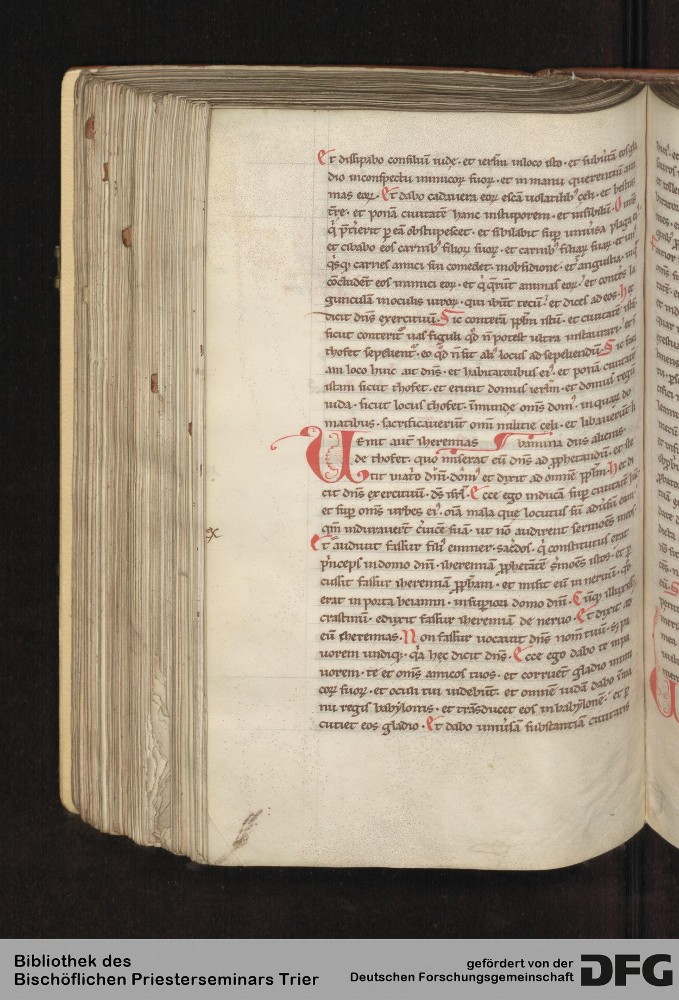 Et dissipabo consiliū iude · et ierłm inloco isto · et subuertā eos gla
dio inconspectu inimicoꝝ suoꝝ · et in manu querentiū ani
mas eoꝝ · Et dabo cadauera eoꝝ escā uolatilib; cęli · et bestiis
tr̄e · et ponā ciuitatē hanc instuporem · et insibilū · Omīs
q̇ p̄terierit p eā obstupescet · et sibilabit sup uniūsa plaga ei;
et cibabo eos carnib; filioꝝ suoꝝ · et carnib; filiaꝝ suaꝝ · et un;
q̇sq; carnes amici sui comedet · inobsidione · et angustia · inq̇
ɔcludent eos inimici eoꝝ · et q̇ q̄runt animas eoꝝ · et conteres la
gunculā inoculis uiroꝝ · qui ibūt tecū · et dices ad eos · Hęc
dicit dn̄s exercituū · Sic conterā pp̄lm istū · et ciuitatē istā
sicut conterit̄ uas figuli qđ n̄ potest ultra instaurari · et ī
thofet sepelient̄ · eo qđ n̄ sit ali; locus ad sepeliendū · Sic faci
am loco huic ait dn̄s · et habitatoribus ei; · et ponā ciuitatē
istam sicut thofet · et erunt domus ierłm · et domus regū
iuda · sicut locus thofet · īmunde · om̄s dom; · inquaꝝ do
matibus · sacrificauerunt om̄i militię cęli · et libauerūt li
Uenit aut̄ iheremias bamina diis alienis ·
de thofet · quo miserat eū dn̄s ad pphetandū · et ste
tit inatrio dom; dn̄i · et dixit ad omnē pp̄lm · Hęc di
cit dn̄s exercituū · ds̄ isrł · Ecce ego inducā sup ciuitatē hāc
et sup om̄s urbes ei; · om̄a mala que locutus sū aduersū eam ·
qm̄ indurauert̄ ceruicē suā · ut nō audirent sermōes meos ·
Et audiuit fassur fili; emmer · sacerdos · q̇ constitutus erat
p̄nceps indomo dn̄i · iheremiā pphetātē sermōes istos · et p
cussit fassur iheremiā pp̄ham · et misit eū in neruū · qđ
erat in porta beiamin · insuperiori domo dn̄i · Cūq; illuxisset
crastinū · eduxit fassur iheremiā de neruo · Et dixit ad
eū iheremias · Non fassur uocauit dn̄s nomen tuū · s; pa
uorem undiq; · qa hęc dicit dn̄s · Ecce ego dabo te inpa
uorem · te et om̄s amicos tuos · et corruent gladio inimi
coꝝ suoꝝ · et oculi tui uidebūt · et omnē iudā dabo īma
nu regis babylonis · et trāsducet eos in babylonē · et p
cutiet eos gladio · Et dabo uniūsā substantiā ciuitatis
ex
Bibliothek des
Bischöflichen Priesterseminars Trier
gefördert von der
Deutschen Forschungsgemeinschaft
DFG